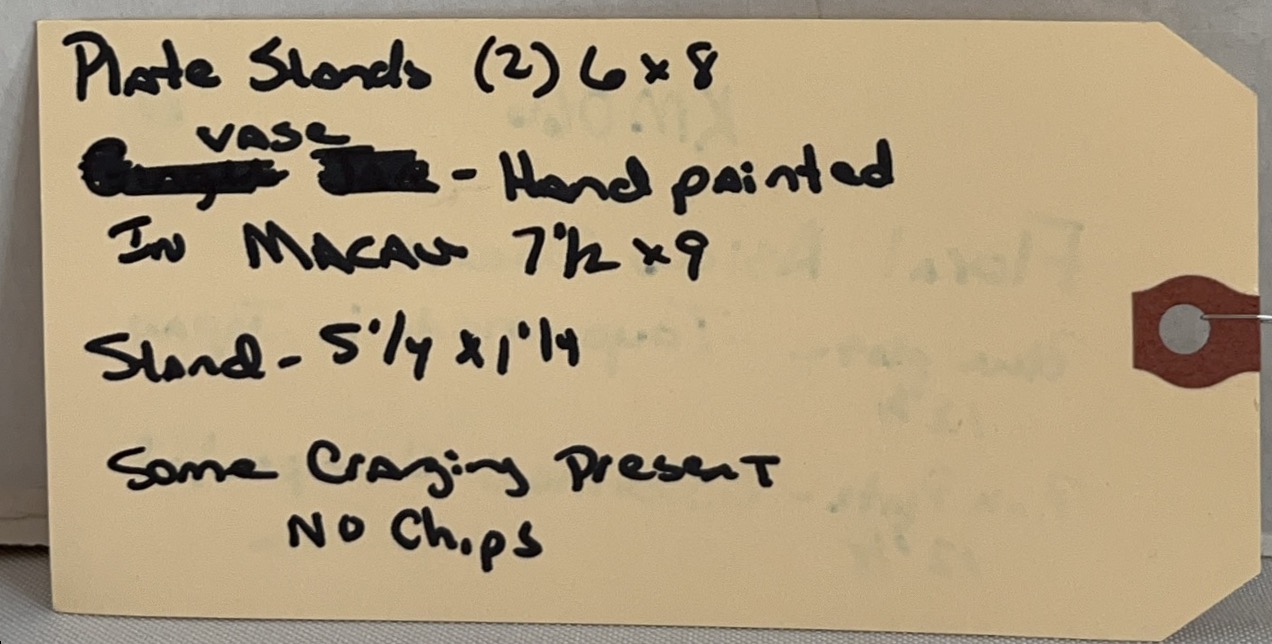 Plate Stands (2) 6 x 8
vase
- Hand painted
In MACAU 7 1/2 x 9
Stand - 5 1/4 x 1 1/4
Some Crazing Present
NO Chips